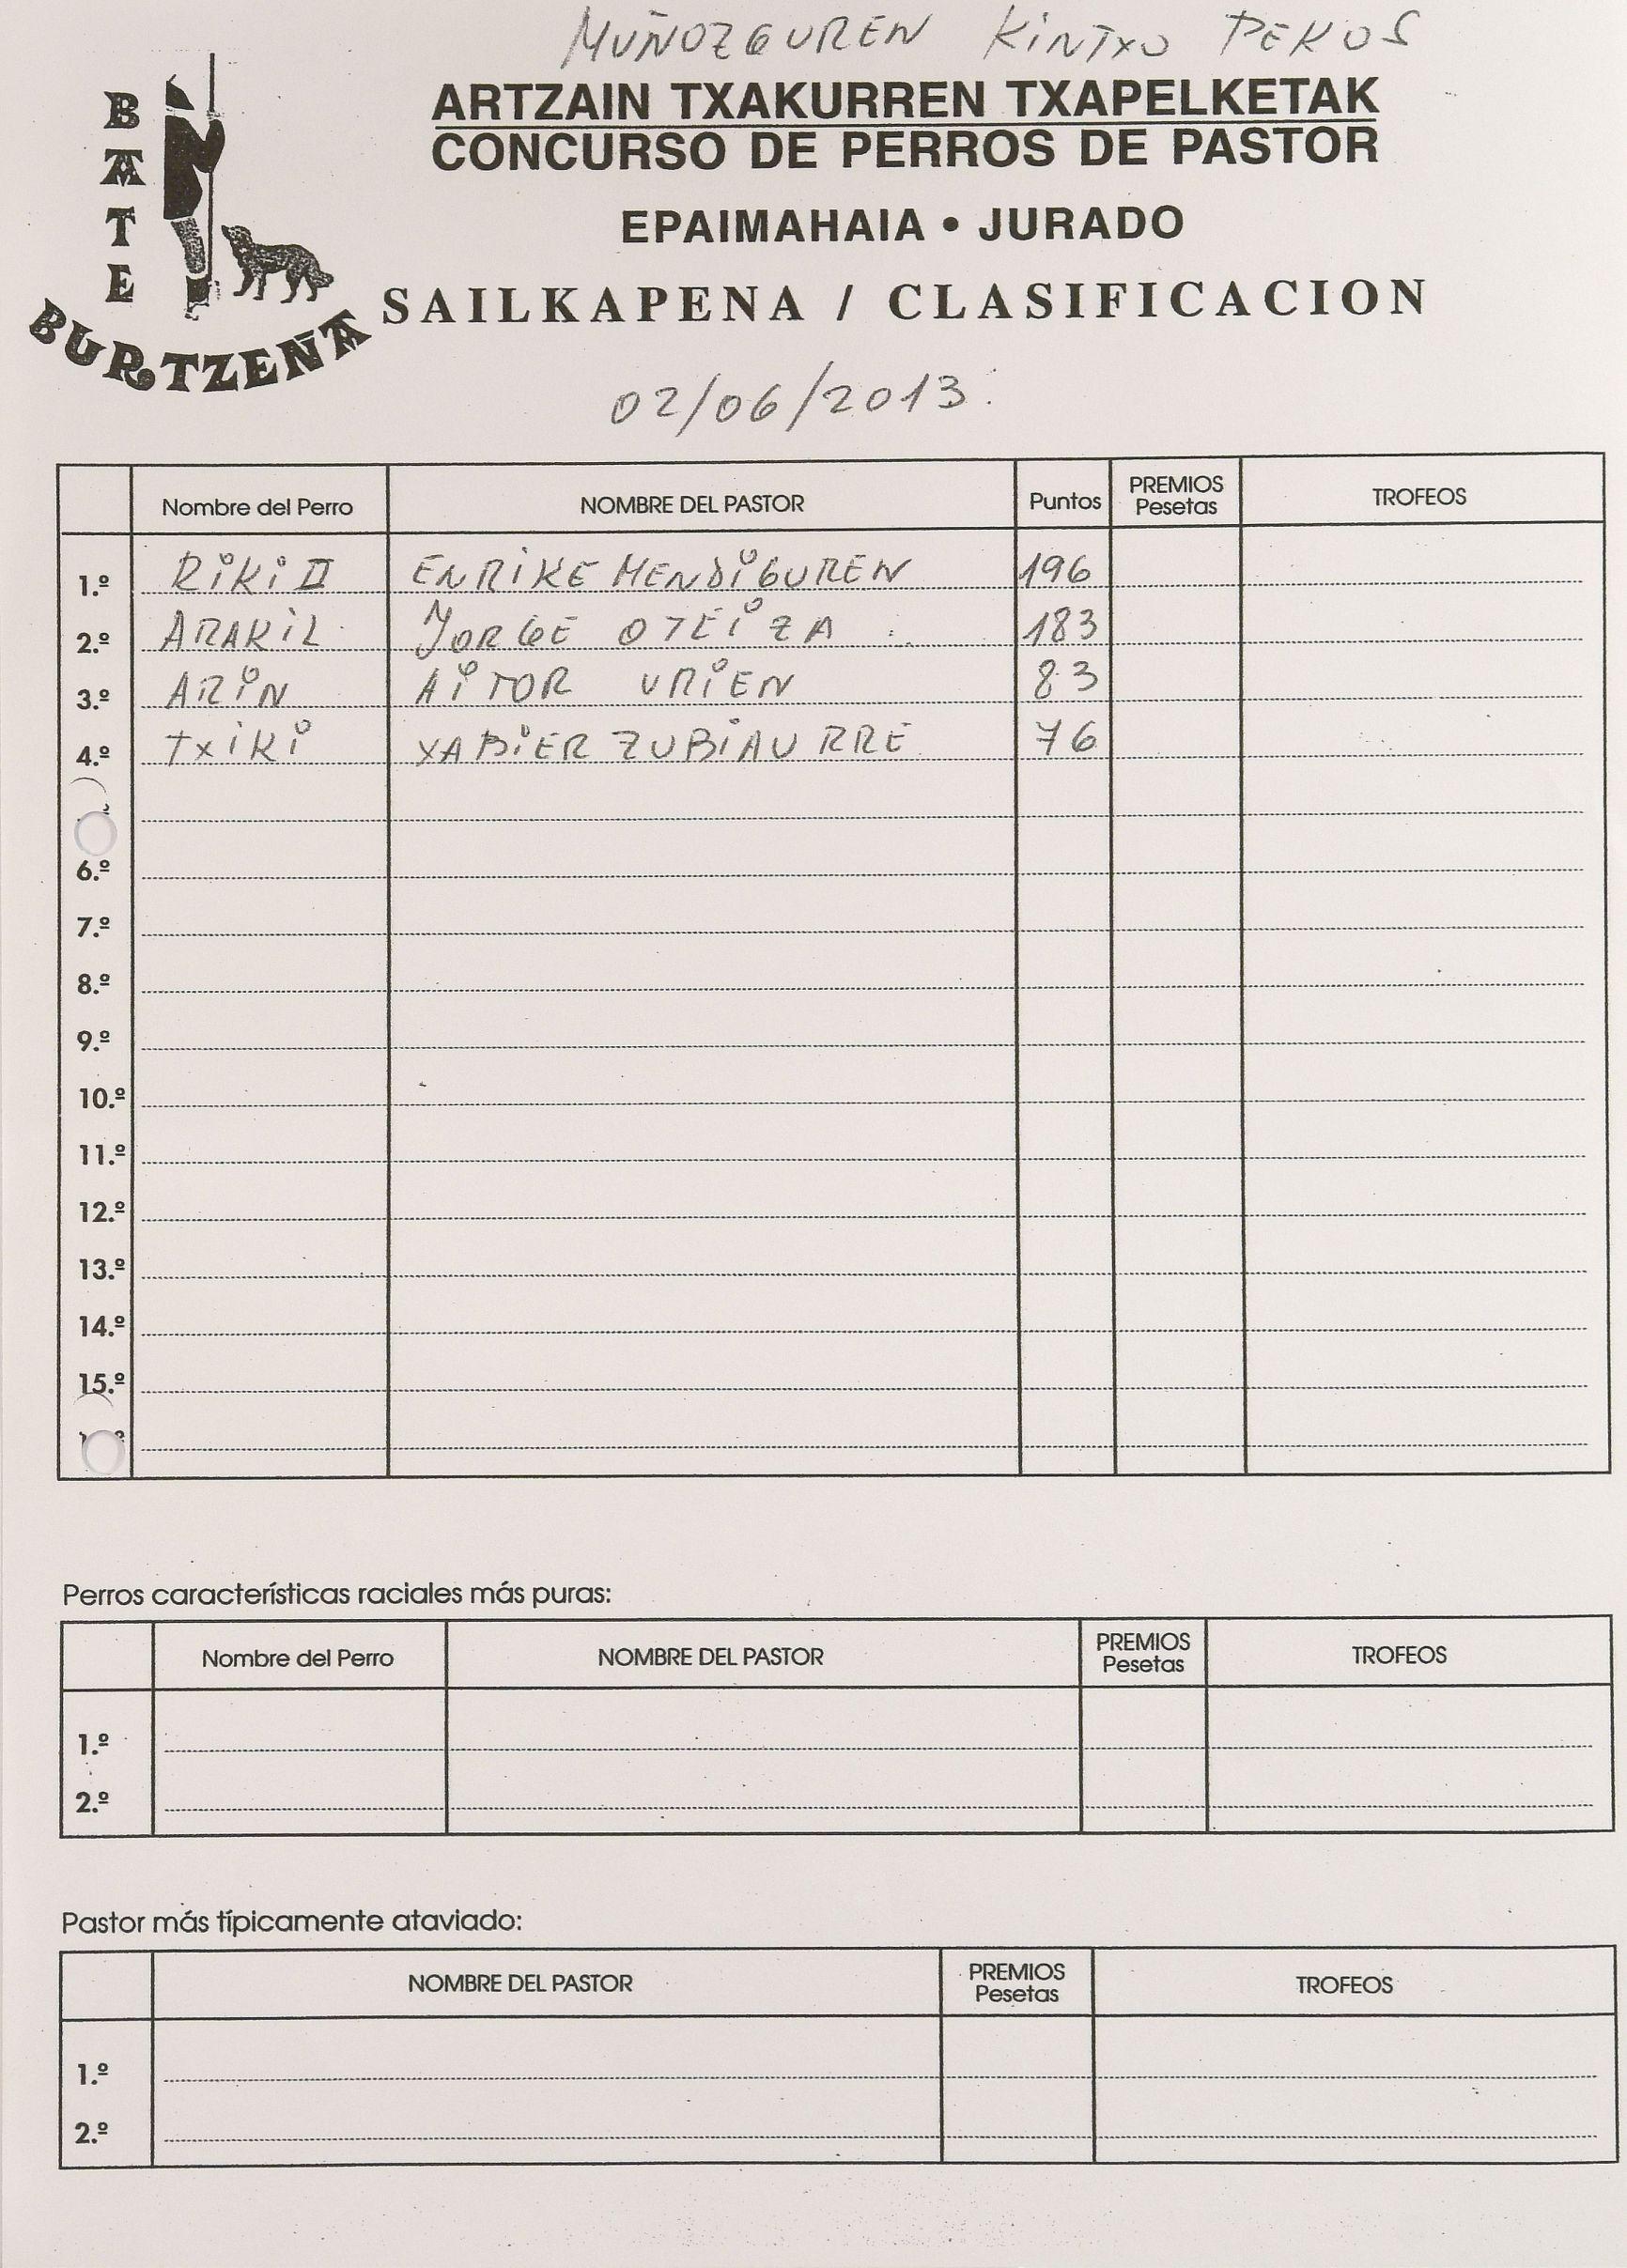 MUÑOZGUREN KINTXO PEKOS
BATE
BURTZEÑA
ARTZAIN TXAKURREN TXAPELKETAK
CONCURSO DE PERROS DE PASTOR
EPAIMAHAIA • JURADO
SAILKAPENA / CLASIFICACION
02/06/2013.
Nombre del Perro NOMBRE DEL PASTOR Puntos PREMIOS Pesetas TROFEOS
1.º RIKI II ENRIKE MENDIGUREN 196
2.º ARAKIL JORGE OTEIZA 183
3.º ARIN AITOR URIEN 83
4.º TXIKI XABIER ZUBIAURRE 76
6.º
7.º
8.º
9.º
10.º
11.º
12.º
13.º
14.º
15.º
Perros características raciales más puras:
Nombre del Perro NOMBRE DEL PASTOR PREMIOS Pesetas TROFEOS
1.º
2.º
Pastor más típicamente ataviado:
NOMBRE DEL PASTOR PREMIOS Pesetas TROFEOS
1.º
2.º